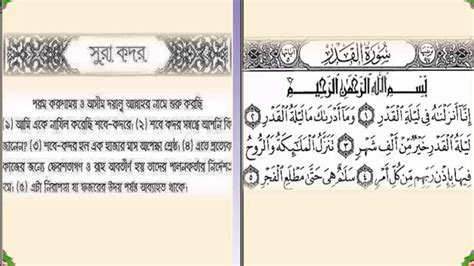 সুরা কদর
পরম করুণাময় ও অসীম দয়ালু আল্লাহর নামে শুরু করছি
(১) আমি একে নাযিল করেছি শবে-কদরে। (২) শবে কদর সমন্ধে আপনি কি
জানেন? (৩) শবে-কদর হল এক হাজার মাস অপেক্ষা শ্রেষ্ঠ। (৪) এতে প্রত্যেক
কাজের জন্যে ফেরেশতাগণ ও রূহ অবতীর্ণ হয় তাদের পালনকর্তার নির্দেশ-
ক্রমে। (৫) এটা নিরাপত্তা যা ফজরের উদয় পর্যন্ত অব্যাহত থাকে।
سُورَةُ الْقَدْرِ
بِسْمِ اللَّهِ الرَّحْمَٰنِ الرَّحِيمِ
إِنَّا أَنزَلْنَاهُ فِي لَيْلَةِ الْقَدْرِ ١ وَمَا أَدْرَاكَ مَا لَيْلَةُ الْقَدْرِ ٢
لَيْلَةُ الْقَدْرِ خَيْرٌ مِّنْ أَلْفِ شَهْرٍ ٣ تَنَزَّلُ الْمَلَائِكَةُ وَالرُّوحُ
فِيهَا بِإِذْنِ رَبِّهِم مِّن كُلِّ أَمْرٍ ٤ سَلَامٌ هِيَ حَتَّىٰ مَطْلَعِ الْفَجْرِ ٥